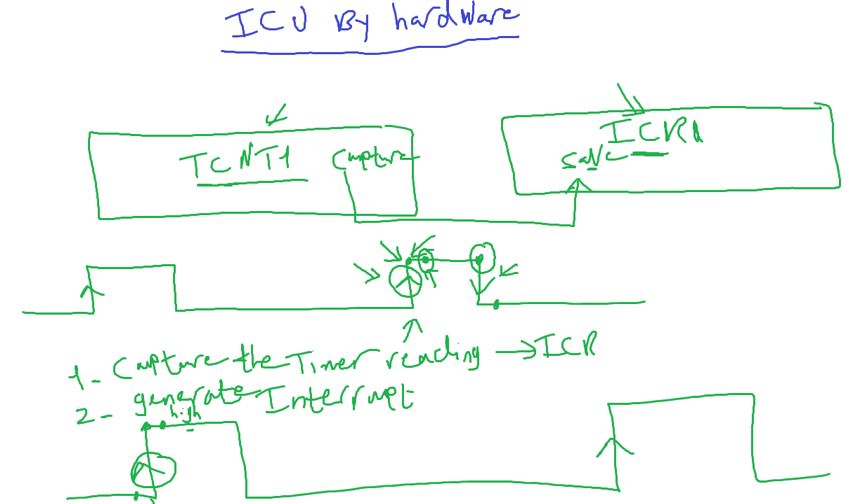 ICU By hardware
TCNT1 Capture
ICR1
save
1- Capture the Timer reading → ICR
2- generate Interrupt
high